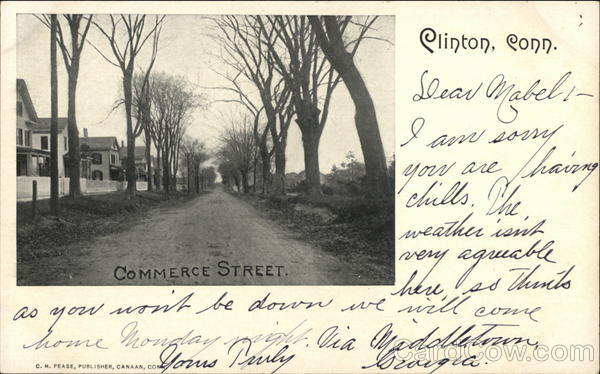 Clinton, Conn.
Dear Mabel:-
I am sorry
you are having
chills. The
weather isn't
very agreeable
here so thinks
as you won't be down we will come
home Monday night. Via Maddletown
Yours Truly Georgia.
COMMERCE STREET.
C. H. PEASE, PUBLISHER, CANAAN, CONN
CardCow.com